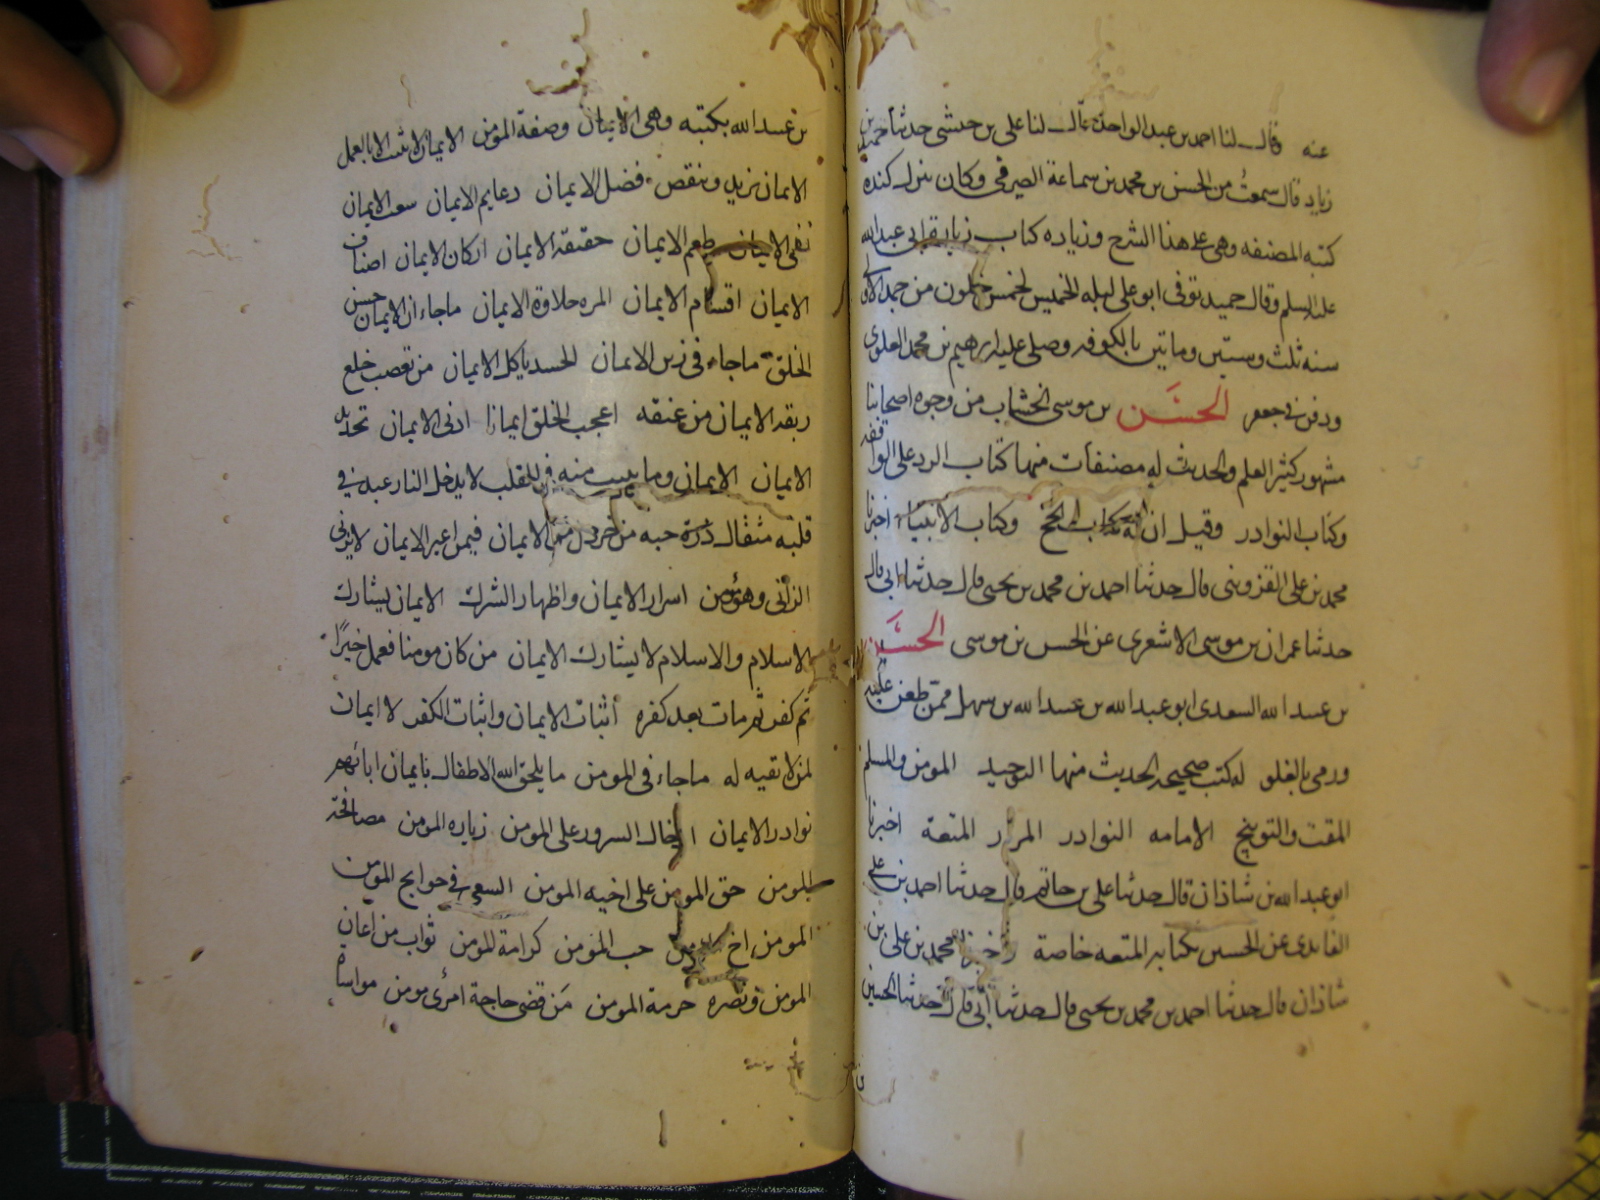 عنه قال لنا احمد بن عبد الواحد قال لنا علي بن حبشي حدثنا حميد بن
زياد قال سمعت من الحسن بن محمد بن سماعة الصيرفي وكان ينزل كنده
كتبه المصنفه وهي على هذا الشرح وزياده كتاب زيارة ابي عبد الله
عليه السلم وقال حميد توفي ابو علي ليله الخميس لخمس خلون من جمد الاولى
سنه ثلث وستين ومائتين بالكوفه وصلى عليه ابرهيم بن محمد العلوي
ودفن في جعفى الحسن بن موسى الخشاب من وجوه اصحابنا
مشهور كثير العلم والحديث له مصنفات منها كتاب الرد على الواقفه
وكتاب النوادر وقيل ان له كتاب الحج وكتاب الانبياء اخبرنا
محمد بن علي القزويني قال حدثنا احمد بن محمد بن يحيى قال حدثنا ابي قال
حدثنا عمران بن موسى الاشعرى عن الحسن بن موسى الحسين
بن عبيد الله السعدى ابو عبد الله بن عبيد الله بن سهل ممن طعن عليه
ورمى بالغلو له كتب صحيحه الحديث منها التوحيد المومن والمسلم
المقت والتوبيخ الامامه النوادر المزار المتعة اخبرنا
ابو عبد الله بن شاذان قال حدثنا علي بن حاتم قال حدثنا احمد بن علي
الفائدى عن الحسين بكتابه المتعه خاصة واخبرنا محمد بن علي بن
شاذان قال حدثنا احمد بن محمد بن يحيى قال حدثنا ابي قال حدثنا الحسين
بن عبيد الله بكتبه وهي الايمان وصفة المؤمن الايمان لا يثبت الا بالعمل
الايمان يزيد وينقص فضل الايمان دعايم الايمان شعب الايمان
نفى الايمان طعم الايمان حقيقه الايمان اركان الايمان اصناف
الايمان اقسام الايمان المره حلاوة الايمان ما جاء ان الايمان حسن
الخلق ما جاء في زين الايمان الحسد ياكل الايمان من تعصب خلع
ربقه الايمان من عنقه اعجب الخلق ايمانا ادنى الايمان تحديد
الايمان الايمان وما يبيت منه في القلب لا يدخل النار عبد في
قلبه مثقال ذرة حبه من خردل من الايمان فيمن اعير الايمان لا يزني
الزاني وهو مؤمن اسرار الايمان واظهار الشرك الايمان يشارك
الاسلام والاسلام لا يشارك الايمان من كان مومنا فعمل خيرًا
ثم كفر ثم مات بعد كفره اثبات الايمان واثبات الكفر لا ايمان
لمن لا تقيه له ما جاء في المومن ما يلحق الله الاطفال بايمان ابائهم
نوادر الايمان ادخال السرور على المومن زياره المومن مصافحة
المومن حق المومن على اخيه المومن السعي في حوايج المومن
المومن اخ المومن حب المومن كرامة المومن ثواب من اعان
المومن ونصره حرمة المومن من قضى حاجة امرئ مومن مواساة